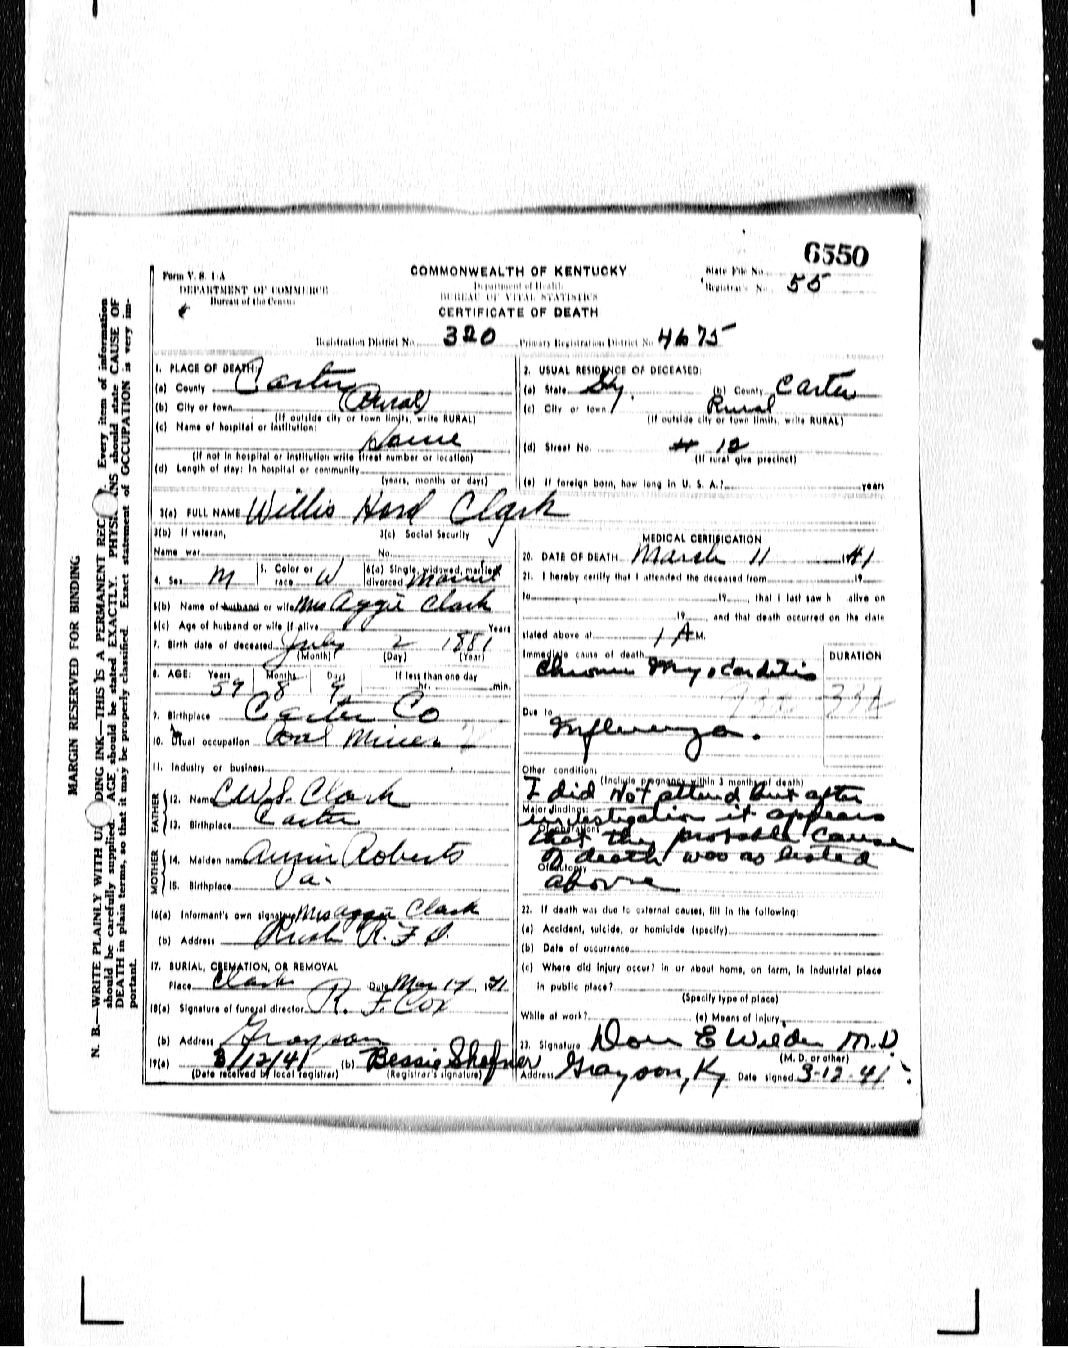 6550
Form V. S. 1-A
DEPARTMENT OF COMMERCE
Bureau of the Census
COMMONWEALTH OF KENTUCKY
Department of Health
BUREAU OF VITAL STATISTICS
CERTIFICATE OF DEATH
State File No.
Registrar's No. 55
Registration District No. 320 Primary Registration District No. 4675
MARGIN RESERVED FOR BINDING
N. B.—WRITE PLAINLY WITH UNFADING INK—THIS IS A PERMANENT REC Every item of information
should be carefully supplied. AGE should be stated EXACTLY. PHYSI NS should state CAUSE OF
DEATH in plain terms, so that it may be properly classified. Exact statement of OCCUPATION is very im-
portant.
1. PLACE OF DEATH:
(a) County Carter
(b) City or town (Rural)
(If outside city or town limits, write RURAL)
(c) Name of hospital or institution:
Home
(If not in hospital or institution write street number or location)
(d) Length of stay: In hospital or community
(years, months or days)
2. USUAL RESIDENCE OF DECEASED:
(a) State Ky. (b) County Carter
(c) City or town Rural
(If outside city or town limits, write RURAL)
(d) Street No. # 12
(If rural give precinct)
(e) If foreign born, how long in U. S. A.? years
3(a) FULL NAME Willis Hord Clark
3(b) If veteran, 3(c) Social Security
Name war No.
4. Sex M 5. Color or race W 6(a) Single, widowed, married, divorced Married
6(b) Name of husband or wife Mrs Aggie Clark
6(c) Age of husband or wife if alive Years
7. Birth date of deceased July 2 1881
(Month) (Day) (Year)
8. AGE: Years Months Days If less than one day
59 8 9 hr. min.
9. Birthplace Carter Co
10. Usual occupation Coal Miner
11. Industry or business
FATHER
12. Name C.W.S. Clark
13. Birthplace Carter
MOTHER
14. Maiden name Roberts
15. Birthplace Va.
16(a) Informant's own signature Mrs Aggie Clark
(b) Address Rush R.F.D
17. BURIAL, CREMATION, OR REMOVAL
Place Clark Date Mar 14, 1941
18(a) Signature of funeral director R. F. Cox
(b) Address Grayson
19(a) 3/12/41 (b) Bessie Shefner
(Date received by local registrar) (Registrar's signature)
MEDICAL CERTIFICATION
20. DATE OF DEATH March 11 1941
21. I hereby certify that I attended the deceased from 19
to 19, that I last saw h alive on
19, and that death occurred on the date
stated above at 1 A M.
Immediate cause of death DURATION
Chronic Myocarditis
Due to
Influenza.
Other conditions
(Include pregnancy within 3 months of death)
Major findings:
Of operations
Of autopsy
I did not attend but after
investigation it appears
that the probable cause
of death was as listed
above
22. If death was due to external causes, fill in the following:
(a) Accident, suicide, or homicide (specify)
(b) Date of occurrence
(c) Where did injury occur? in or about home, on farm, in industrial place
in public place?
(Specify type of place)
While at work? (e) Means of Injury
23. Signature Don E Wilder M.D.
(M. D. or other)
Address Grayson, Ky Date signed 3-12-41